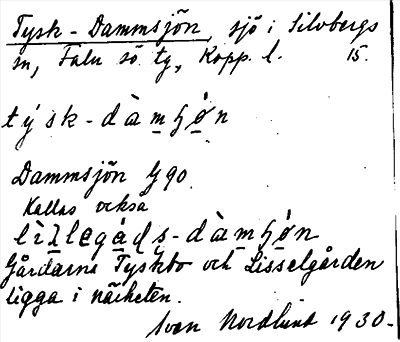 Tysk-Dammsjön, sjö i Silvbergs
sn, Falu sö. tg, Kopp. l. 15.
týsk-dàmʃø̀n
Dammsjön G 90.
Kallas också
lìslegàḍṣ-dàmʃø̀n
Gårdarna Tyskbo och Lisselgården
ligga i närheten.
Sven Nordlund 1930.